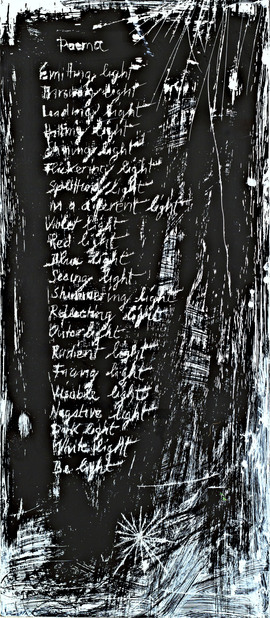 Poema
Emitting light
Thirsting light
Leading light
light
Shining light
Flickering light
Spitting light
In a different light
Violet light
Red light
Blue light
Seeing light
Shimmering light
Reflecting light
Outer light
Radient light
light
Visable light
Negative light
Dark light
White light
Be light